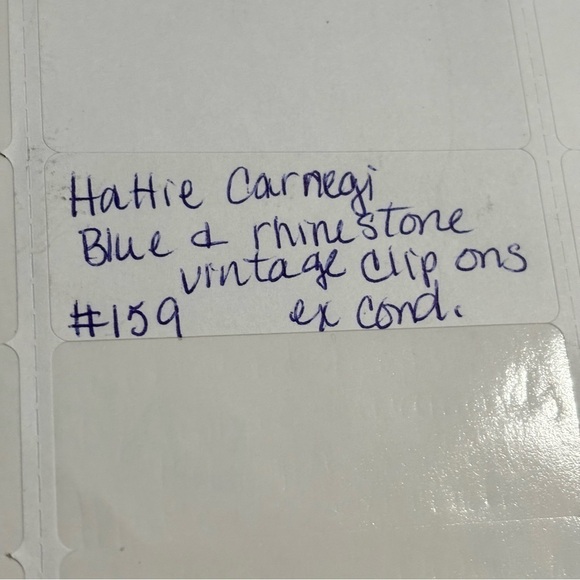 Hattie Carnegi
Blue & rhinestone
vintage clip ons
#159 ex cond.